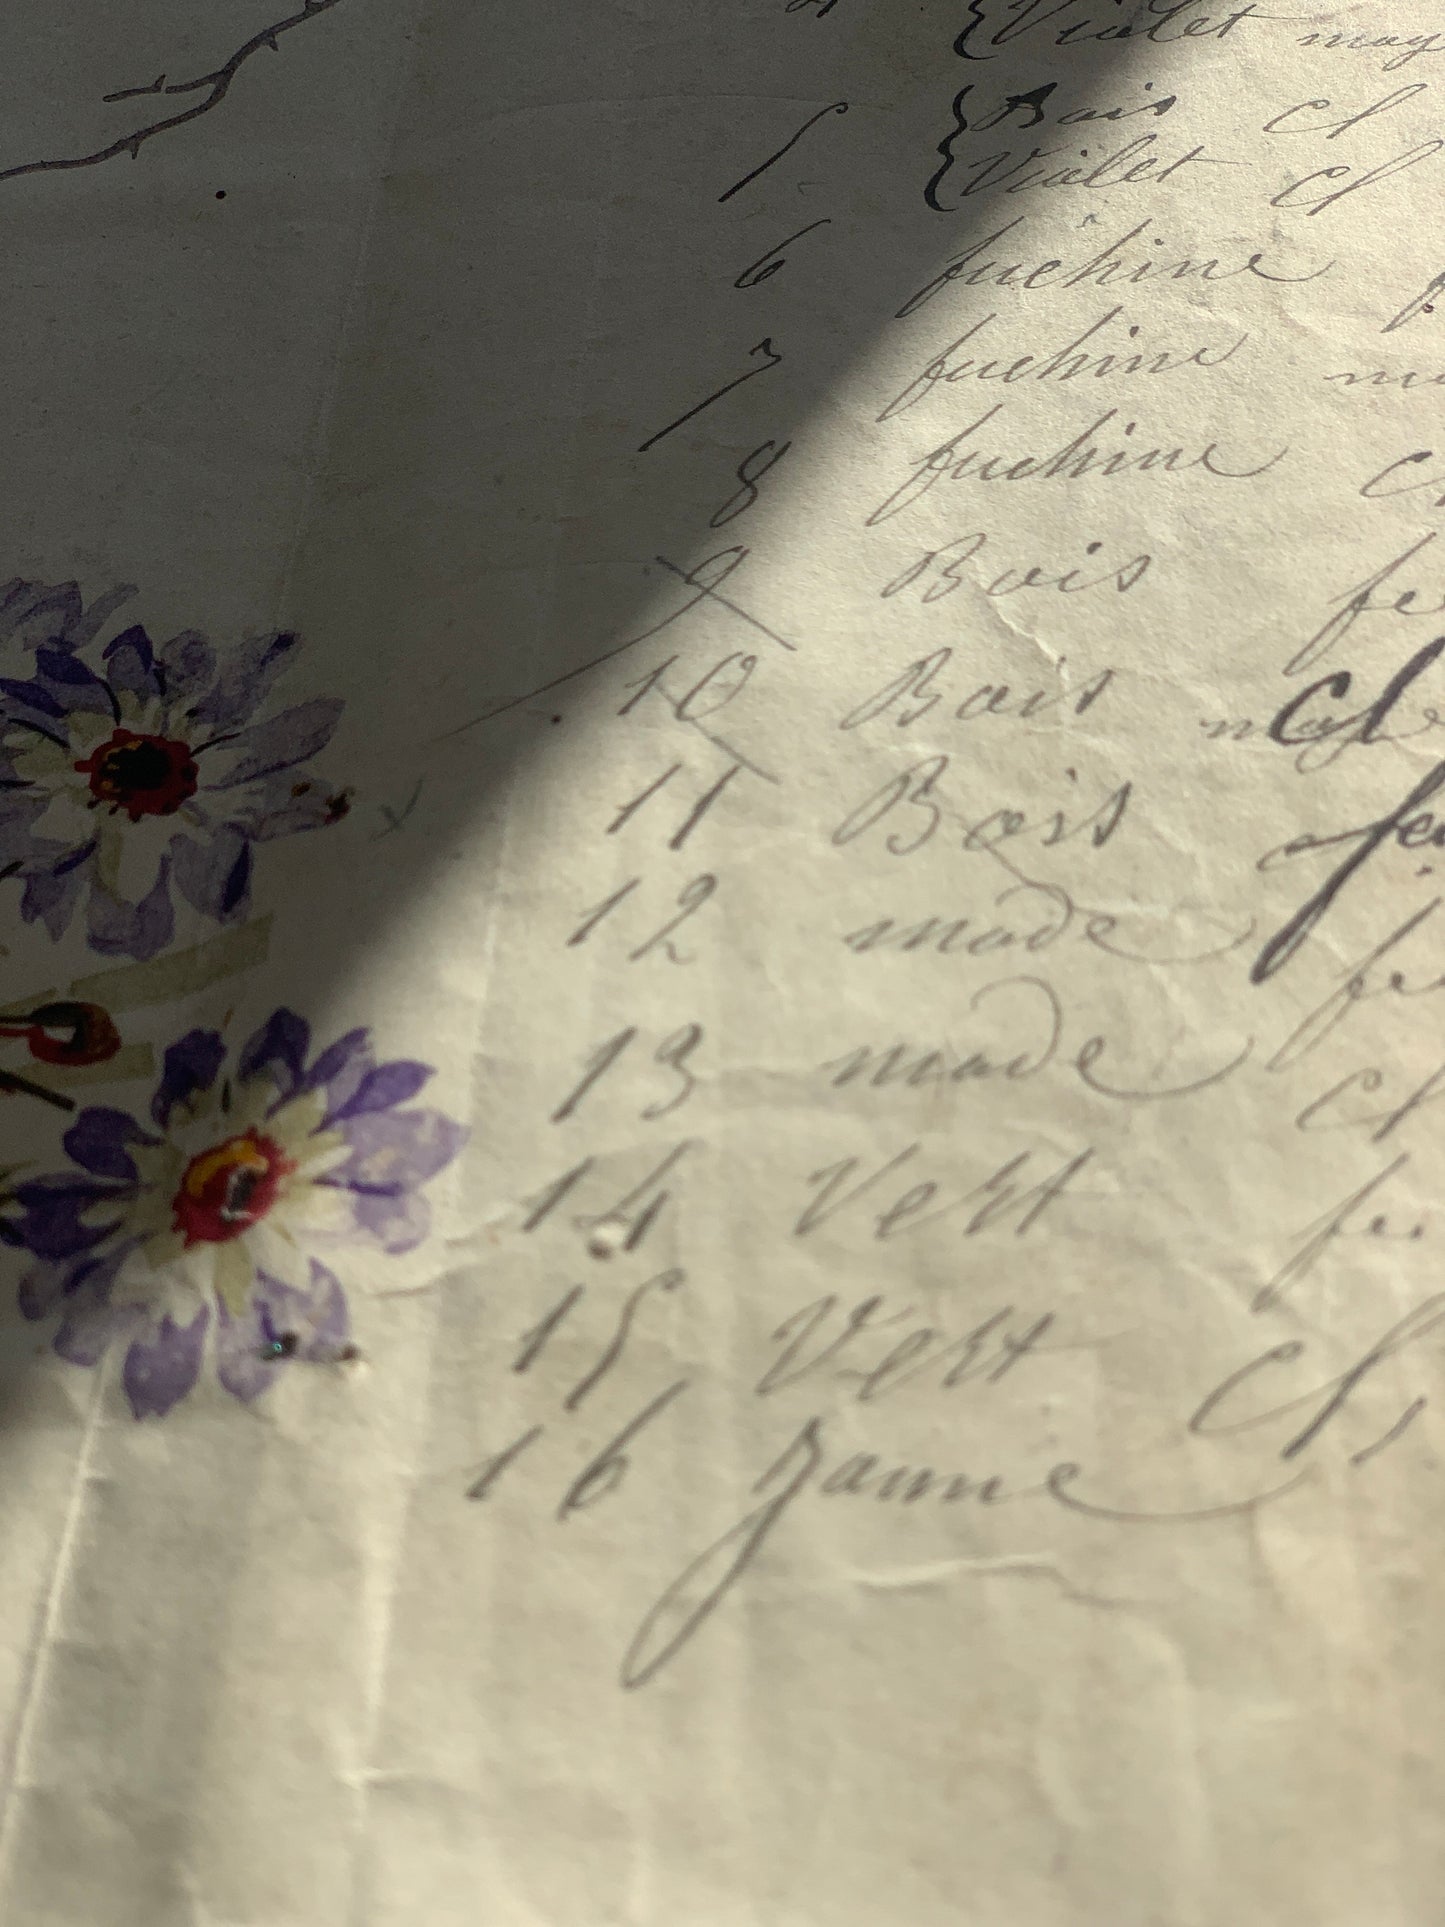 {Violet may
5 {Bois cl
{Violet cl
6 fuchine
7 fuchine
8 fuchine
9 Bois
10 Bois cl
11 Bois
12 mode
13 mode cl
14 Vert
15 Vert cl
16 Jaune